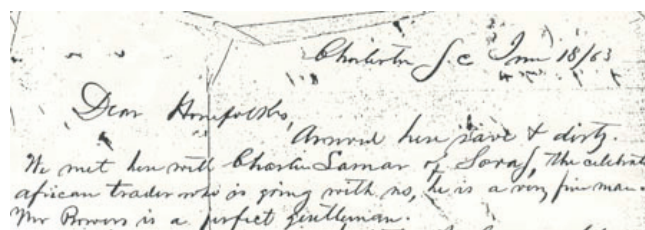 Charleston S.C June 18/63
Dear Homefolks,
Arrived here save & dirty.
We met here with Charlie Lamar of Savaf, the celebrat
african trader who is going with us, he is a very fine man.
Mr Bowers is a perfect gentleman.